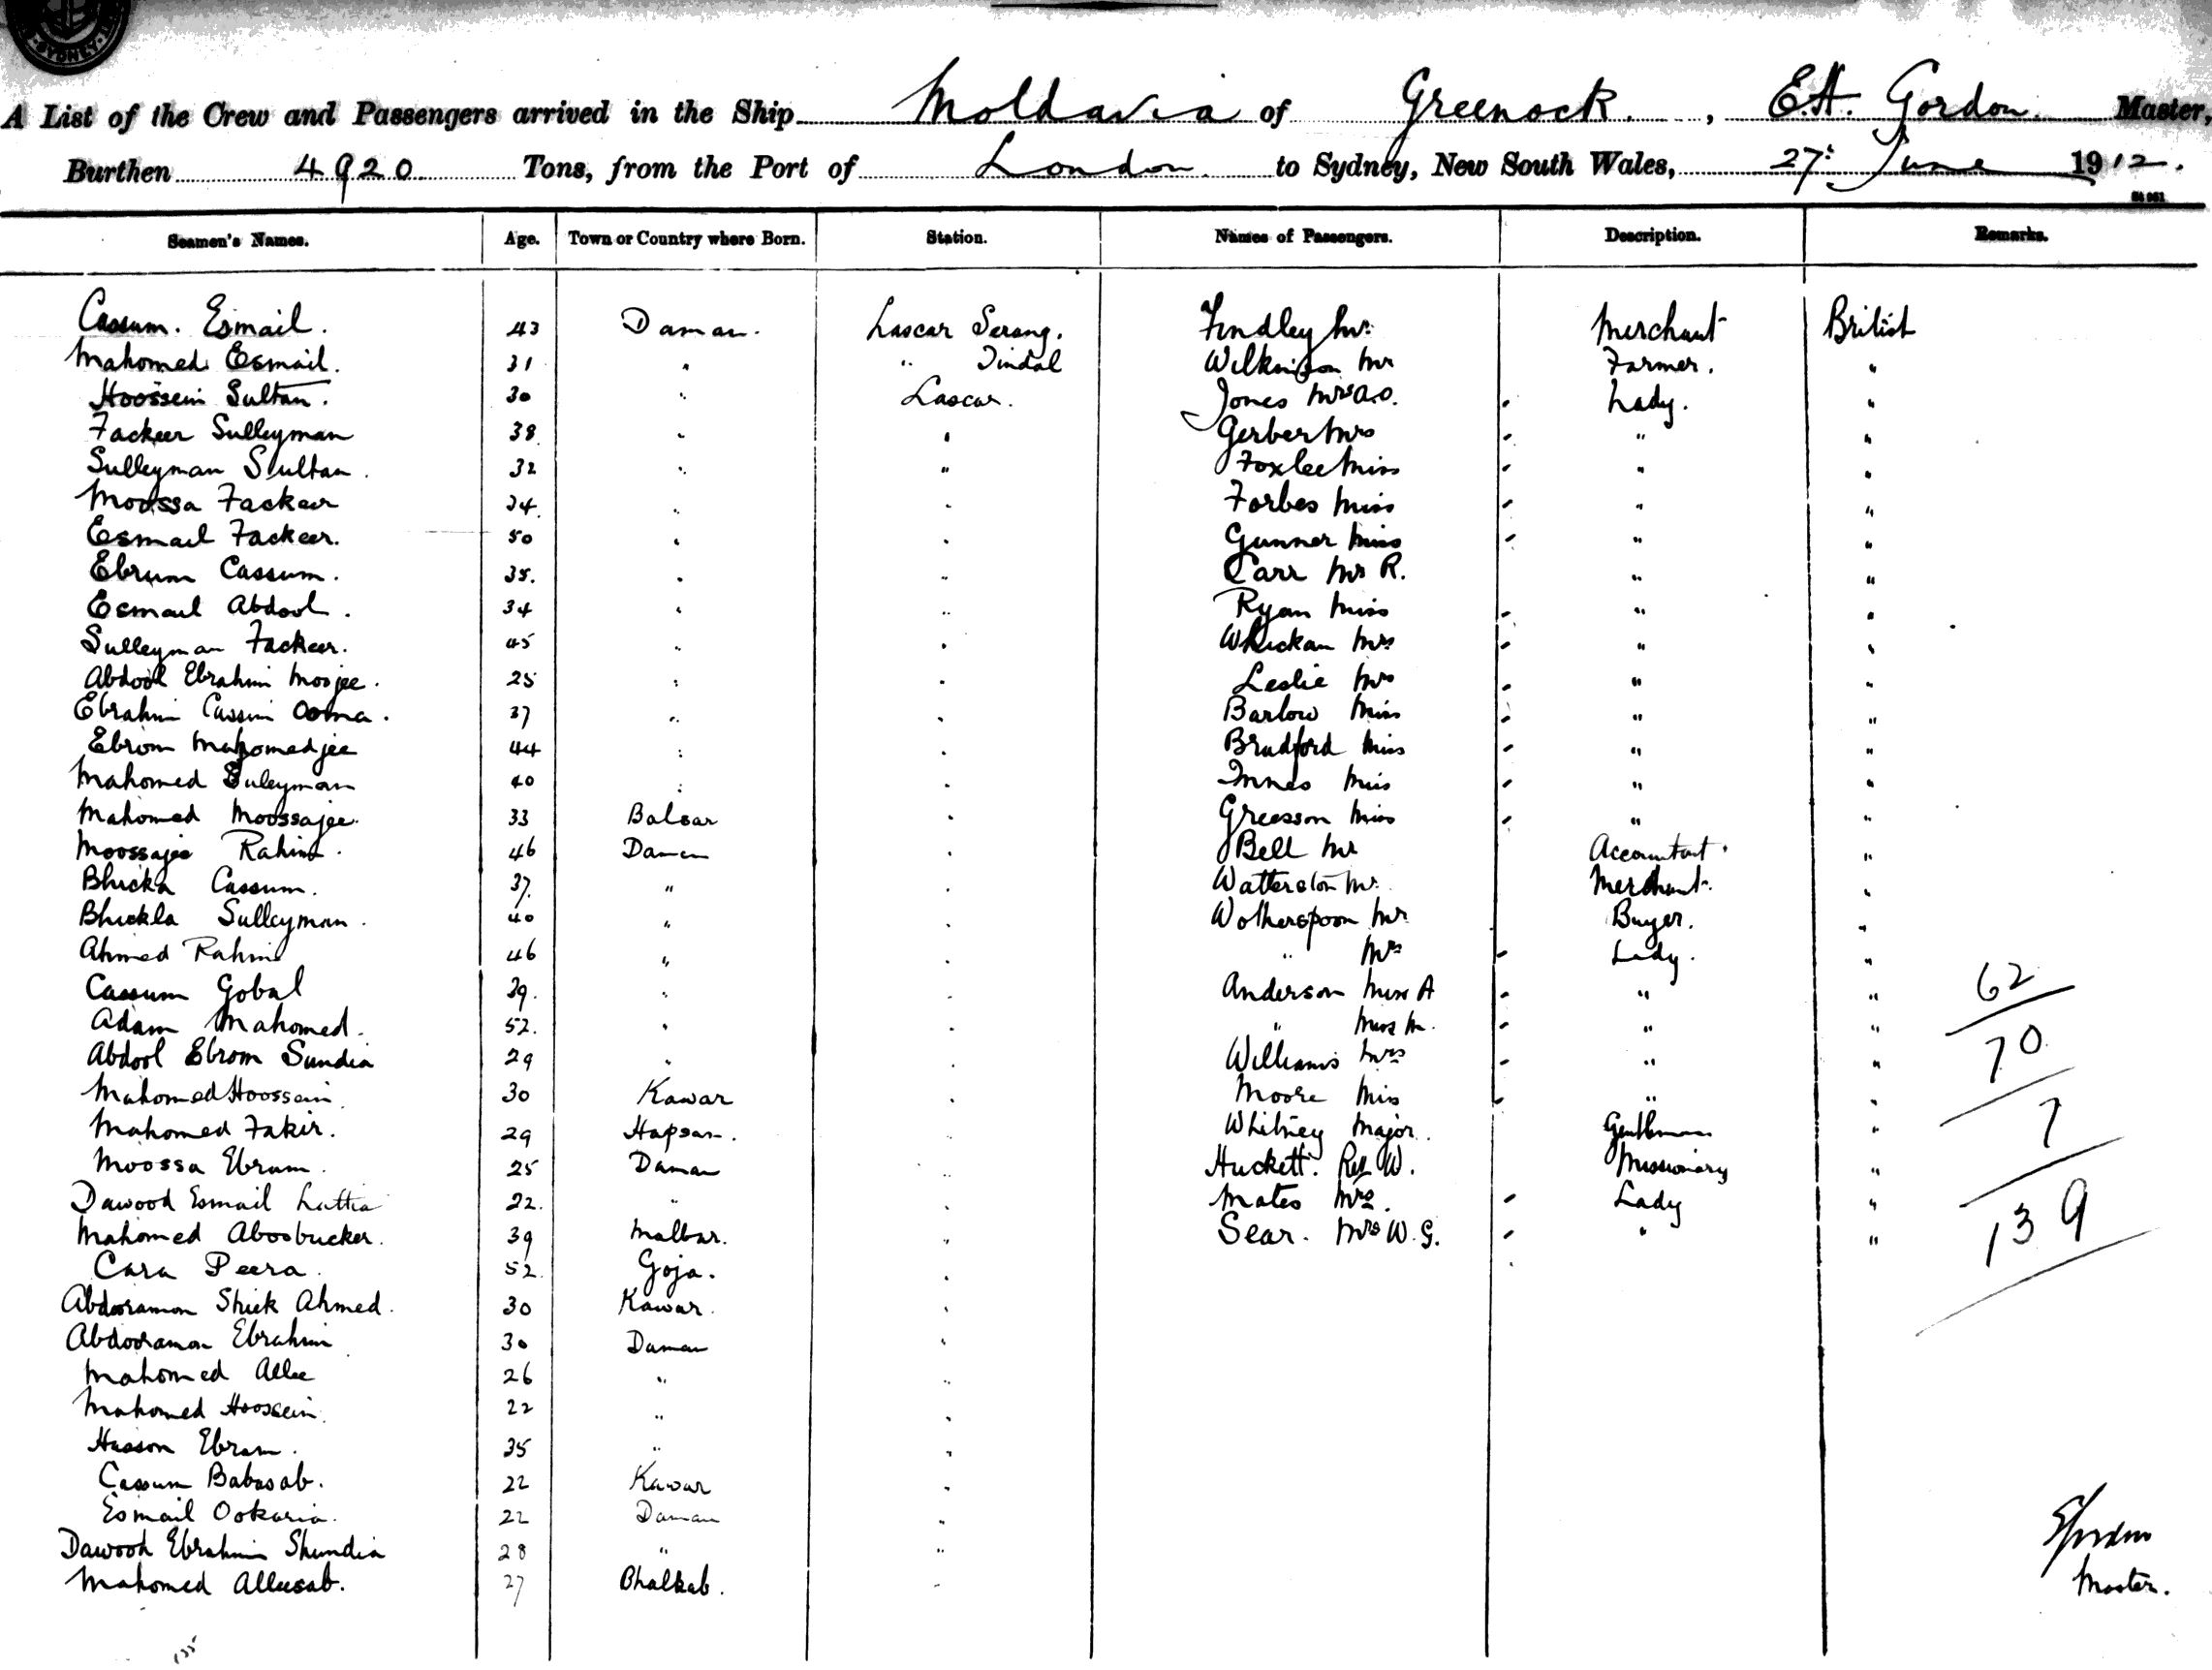 SYDNEY
A List of the Crew and Passengers arrived in the Ship Moldavia of Greenock, E.A. Gordon Master,
Burthen 4920 Tons, from the Port of London to Sydney, New South Wales, 27 June 1912.
Seamen's Names. Age. Town or Country where Born. Station. Names of Passengers. Description. Remarks.
Cassum. Esmail. 43 Daman. Lascar Serang. Findley Mr. Merchant British
Mahomed Esmail. 31 " " Tindal Wilkinson Mr Farmer. "
Hoossein Sultan. 30 " Lascar. Jones Mrs A.O. Lady. "
Fackeer Sulleyman 38 " " Gerber Mrs " "
Sulleyman Sultan. 32 " " Foxlee Miss " "
Moossa Fackeer 34 " " Forbes Miss " "
Esmail Fackeer. 50 " " Gunner Miss " "
Ebrum Cassum. 35. " " Carr Mr R. " "
Esmail Abdool. 34 " " Ryan Miss " "
Sulleyman Fackeer. 45 " " Whickan Mrs " "
Abdool Ebrahim Moojee. 25 " " Leslie Mrs " "
Ebrahim Cassim Ooma. 37 " " Barlow Miss " "
Ebrom Mahomedjee 44 " " Bradford Miss " "
Mahomed Suleyman 40 " " Innes Miss " "
Mahomed Moossajee. 33 Balsar " Greesson Miss " "
Moossajee Rahim. 46 Daman " Bell Mr Accountant. "
Bhicka Cassum. 37. " " Watterston Mr. Merchant. "
Bhickla Sulleyman. 40 " " Wotherspoon Mr Buyer. "
Ahmed Rahim 46 " " " Mrs Lady. "
Cassum Gobal 39. " " Anderson Miss A " " 62
Adam Mahomed. 52. " " " Miss M. " "
Abdool Ebrom Sundia 29 " " Williams Mrs " " 70
Mahomed Hoossein 30 Kawar " Moore Miss " "
Mahomed Fakir. 29 Hapsan. " Whitney Major. Gentleman " 7
Moossa Ebram. 25 Daman " Huckett. Rev W. Missionary "
Dawood Esmail Lattia 22. " " Mates Mrs. Lady "
Mahomed Aboobucker. 39 Malbar. " Sear. Mrs W.G. " " 139
Cara Peera. 52. Goja. "
Abdooramon Shiek Ahmed. 30 Kawar. "
Abdooramon Ebrahim 30 Daman "
Mahomed Allee 26 " "
Mahomed Hoossein. 22 " "
Hasson Ebram. 35 " "
Cassum Babasab. 22 Kawar "
Esmail Ookaria. 22 Daman "
Dawood Ebrahim Shundia 28 " "
Mahomed Alleesab. 27 Bhalkab. "
EGordon
Master.
135